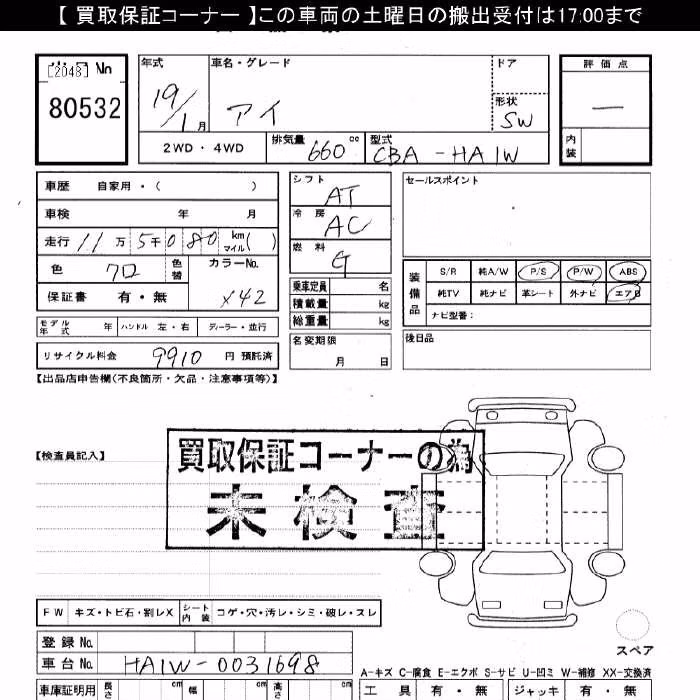 【 買取保証コーナー 】この車両の土曜日の搬出受付は17:00まで
[2048] No
80532
年式 19/1月
車名・グレード アイ
ドア
形状 SW
評価点 —
内装
2WD・4WD
排気量 660 cc
型式 CBA-HA1W
車歴 自家用・( )
車検 年 月
走行 11万5千080 km マイル( )
色 クロ 色替 カラーNo. X42
保証書 有・無
モデル年式 年 ハンドル 左・右 ディーラー・並行
リサイクル料金 9910 円 預託済
シフト AT
冷房 AC
燃料 G
乗車定員 名
積載量 kg
総重量 kg
名変期限 月 日
セールスポイント
装備品 S/R 純A/W P/S P/W ABS
純TV 純ナビ 革シート 外ナビ エアB
ナビ型番:
後日品
【出品店申告欄(不良箇所・欠品・注意事項等)】
【検査員記入】
買取保証コーナーの為
未検査
FW キズ・トビ石・割レX シート内装 コゲ・穴・汚レ・シミ・破レ・スレ
登録No.
車台No. HA1W-0031698
スペア
A-キズ C-腐食 E-エクボ S-サビ U-凹ミ W-補修 XX-交換済
車庫証明用 長さ cm 幅 cm 高さ cm
工具 有・無 ジャッキ 有・無